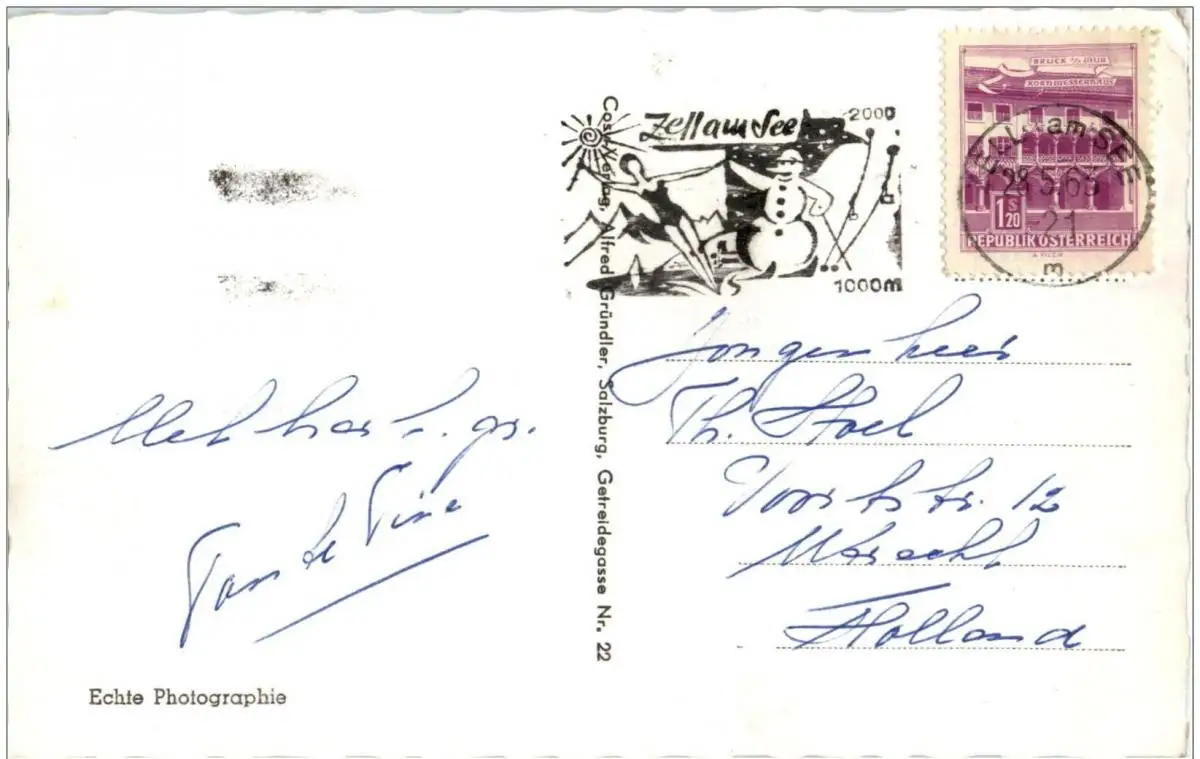 BRUCK a/d MUR
KORNMESSERHAUS
1 S 20
REPUBLIK ÖSTERREICH
ZELL am SEE
28.5.65-21
m
Zell am See
2000
1000m
Cosy-Verlag, Alfred Gründler, Salzburg, Getreidegasse Nr. 22
Met hart. gr.
Tante Tine
Jongenheer
Th. Stoel
12
Utrecht
Holland
Echte Photographie